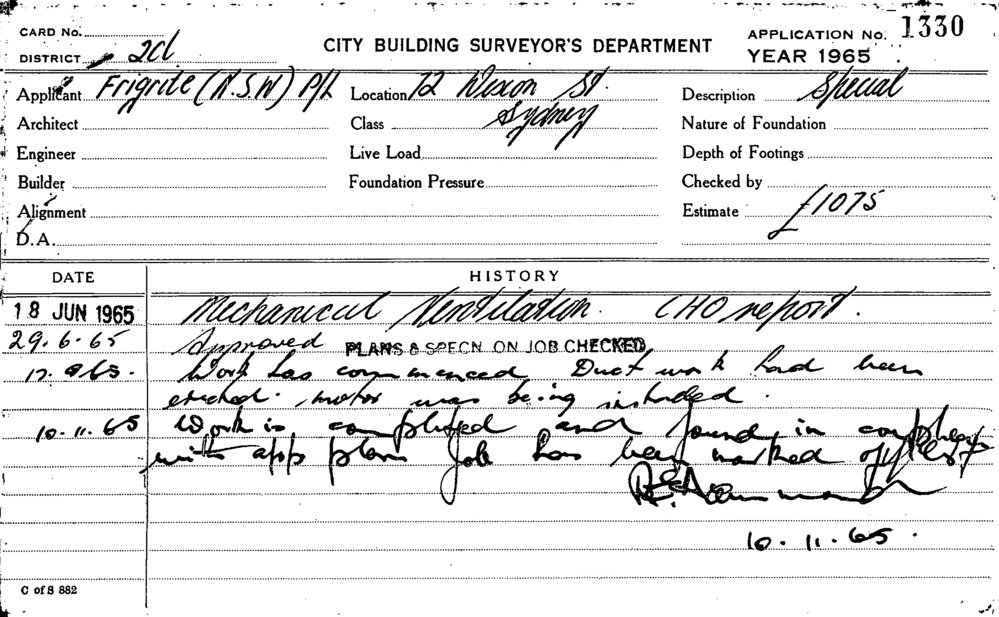 CARD No.
DISTRICT 2cl
CITY BUILDING SURVEYOR'S DEPARTMENT
APPLICATION No. 1330
YEAR 1965
Applicant Frigrite (N.S.W) P/L Location 72 Dixon St. Description Special
Sydney
Architect Class Nature of Foundation
Engineer Live Load Depth of Footings
Builder Foundation Pressure Checked by
Alignment Estimate £1075
D.A.
DATE HISTORY
18 JUN 1965 Mechanical Ventilation. CHO report.
29.6.65 Approved PLANS & SPECN ON JOB CHECKED
17.9.65. Work has commenced Duct work had been
erected. motor was being installed.
10.11.65 Work is completed and found in
with app plans Job has been marked off
10.11.65.
C of S 882